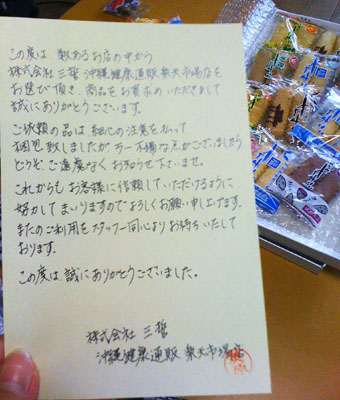 この度は、数あるお店の中から
株式会社三皙 沖縄健康通販楽天市場店を
お選び頂き、商品をお買求めいただきまして
誠にありがとうございます。
ご依頼の品は 細心の注意を払って
梱包致しましたが 万一不備な点がございましたら
どうぞ、ご遠慮なく お知らせ下さいませ。
これからも お客様に信頼していただけるように
努力してまいりますのでよろしくお願い申し上げます。
またのご利用をスタッフ一同心よりお待ちいたして
おります。
この度は、誠にありがとうございました。
株式会社 三皙
沖縄健康通販 楽天市場店